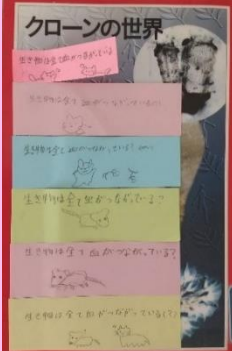 クローンの世界
生き物は全て血がつながっている
生き物は全て血がつながっている
生き物は全て血がつながっている
生き物は全て血がつながっている?
生き物は全て血がつながっている?
生き物は全て血がつながっている(?)